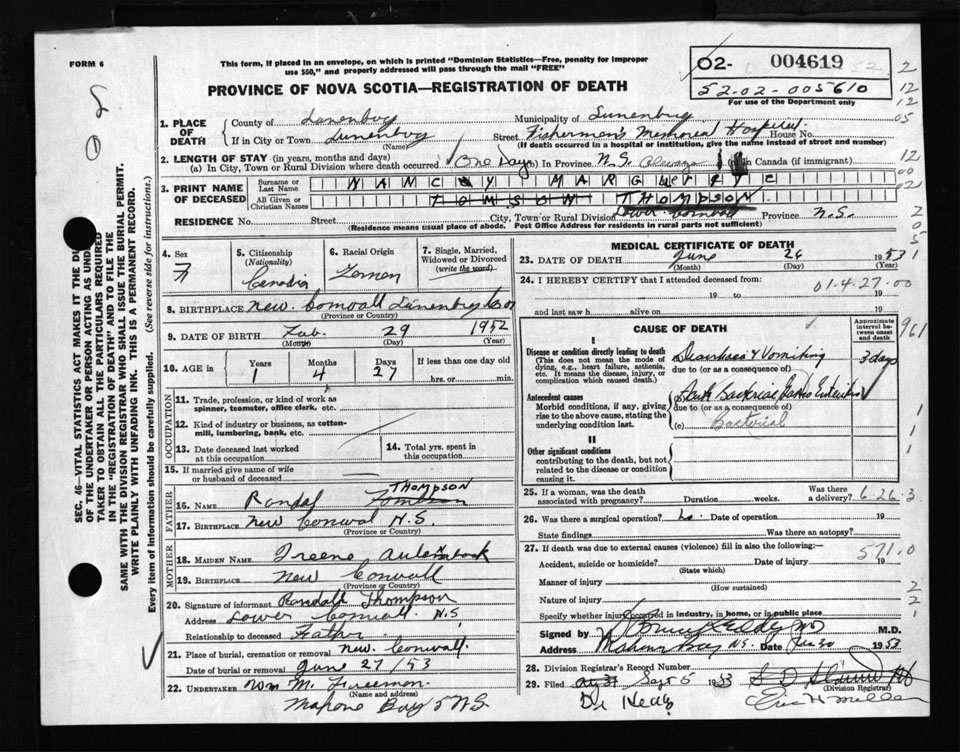 FORM 6
This form, if placed in an envelope, on which is printed "Dominion Statistics—Free, penalty for improper
use $50," and properly addressed will pass through the mail "FREE"
PROVINCE OF NOVA SCOTIA—REGISTRATION OF DEATH
02- 004619
52-02-005610
For use of the Department only
1. PLACE OF DEATH
County of Lunenburg Municipality of Lunenburg
If in City or Town Lunenburg Street Fishermen's Memorial Hospital House No.
(Name) (If death occurred in a hospital or institution, give the name instead of street and number)
2. LENGTH OF STAY (in years, months and days)
(a) In City, Town or Rural Division where death occurred One Day (b) In Province N.S. Always In Canada (if immigrant)
3. PRINT NAME OF DECEASED
Surname or Last Name NANCY MARGUERITE
All Given or Christian Names TOMSON THOMPSON
RESIDENCE No. Street City, Town or Rural Division Lower Cornwall Province N.S.
(Residence means usual place of abode. Post Office Address for residents in rural parts not sufficient)
4. Sex F
5. Citizenship (Nationality) Canadian
6. Racial Origin German
7. Single, Married, Widowed or Divorced (write the word)
8. BIRTHPLACE New Cornwall Lunenburg Co
(Province or Country)
9. DATE OF BIRTH Feb. 29 1952
(Month) (Day) (Year)
10. AGE in Years 1 Months 4 Days 27 If less than one day old
hrs. or min.
OCCUPATION
11. Trade, profession, or kind of work as spinner, teamster, office clerk, etc.
12. Kind of industry or business, as cotton-mill, lumbering, bank, etc.
13. Date deceased last worked at this occupation
14. Total yrs. spent in this occupation
15. If married give name of wife or husband of deceased
FATHER
THOMPSON
16. NAME Randal
17. BIRTHPLACE New Conwal N.S.
MOTHER
18. MAIDEN NAME Ireene
19. BIRTHPLACE New Conwall
(Province or Country)
20. Signature of informant Randall Thompson
Address Lower Cornwall. N.S
Relationship to deceased Father
21. Place of burial, cremation or removal New. Cornwall.
Date of burial or removal June 27/53
22. UNDERTAKER Wm M. Freeman
(Name and address)
Mahone Bay N.S.
MEDICAL CERTIFICATE OF DEATH
23. DATE OF DEATH June 26 1953
(Month) (Day) (Year)
24. I HEREBY CERTIFY that I attended deceased from:
01-4-27-00
19 to 19
and last saw h alive on 19
CAUSE OF DEATH
Approximate interval between onset and death
961
I
Disease or condition directly leading to death
(This does not mean the mode of dying, e.g., heart failure, asthenia, etc. It means the disease, injury, or complication which caused death.)
Diarrhoea & Vomiting 3 days
due to (or as a consequence of)
Antecedent causes
Morbid conditions, if any, giving rise to the above cause, stating the underlying condition last.
Acute Bacterial Gastro Enteritis
due to (or as a consequence of)
(c) Bacterial
II
Other significant conditions
contributing to the death, but not related to the disease or condition causing it.
25. If a woman, was the death associated with pregnancy? Duration weeks. Was there a delivery? 6-26-3
26. Was there a surgical operation? No. Date of operation
State findings Was there an autopsy?
27. If death was due to external causes (violence) fill in also the following:—
571.0
Accident, suicide or homicide? Date of injury 19
(State which)
Manner of injury
(How sustained)
Nature of injury
Specify whether injury occurred in industry, in home, or in public place
Signed by M.D.
Address Mahone Bay N.S. Date 19
28. Division Registrar's Record Number
29. Filed Sept 5 1953
(Division Registrar)
SEC. 46—VITAL STATISTICS ACT MAKES IT THE DU
OF THE UNDERTAKER OR PERSON ACTING AS UND
TAKER TO OBTAIN ALL THE PARTICULARS REQUIRED
IN THE "REGISTRATION OF DEATH" AND TO FILE THE
SAME WITH THE DIVISION REGISTRAR WHO SHALL ISSUE THE BURIAL PERMIT.
WRITE PLAINLY WITH UNFADING INK. THIS IS A PERMANENT RECORD.
Every item of information should be carefully supplied. (See reverse side for instructions.)